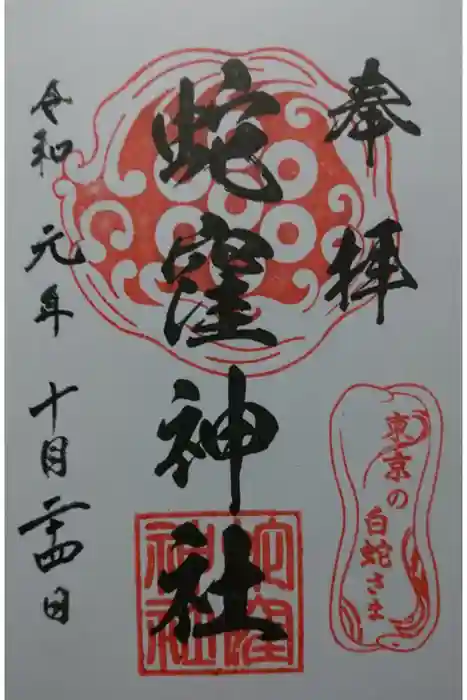 奉拝
東京の白蛇さま
蛇窪神社
蛇窪神社
令和元年十月二十四日